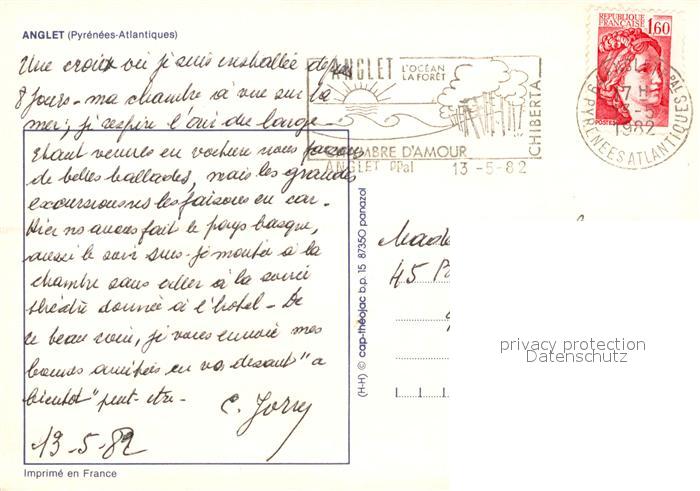 ANGLET (Pyrénées-Atlantiques)
Une croix où je suis installée depuis
8 jours - ma chambre à vue sur la
mer; je respire l'air du large -
Etant venues en voiture nous faisons
de belles ballades, mais les grandes
excursions les faisons en car -
Hier nous avons fait le pays basque,
aussi le soir suis-je montée à la
chambre sans aller à la soirée
théâtre donnée à l'hotel - De
ce beau coin, je vous envoie mes
bonnes amitiés en vous disant "a
bientot" peut-etre -
C. Jorry
13-5-82
Imprimé en France
(H-H) © cap-théojac b.p. 15 87350 panazol
ANGLET L'OCÉAN
LA FORÊT
CHIBERTA
CHAMBRE D'AMOUR
ANGLET PPal 13-5-82
RÉPUBLIQUE
FRANÇAISE
1,60
POSTES
PPAL
7 H
13-5
1982
PYRENEES ATLANTIQUES
45
privacy protection
Datenschutz